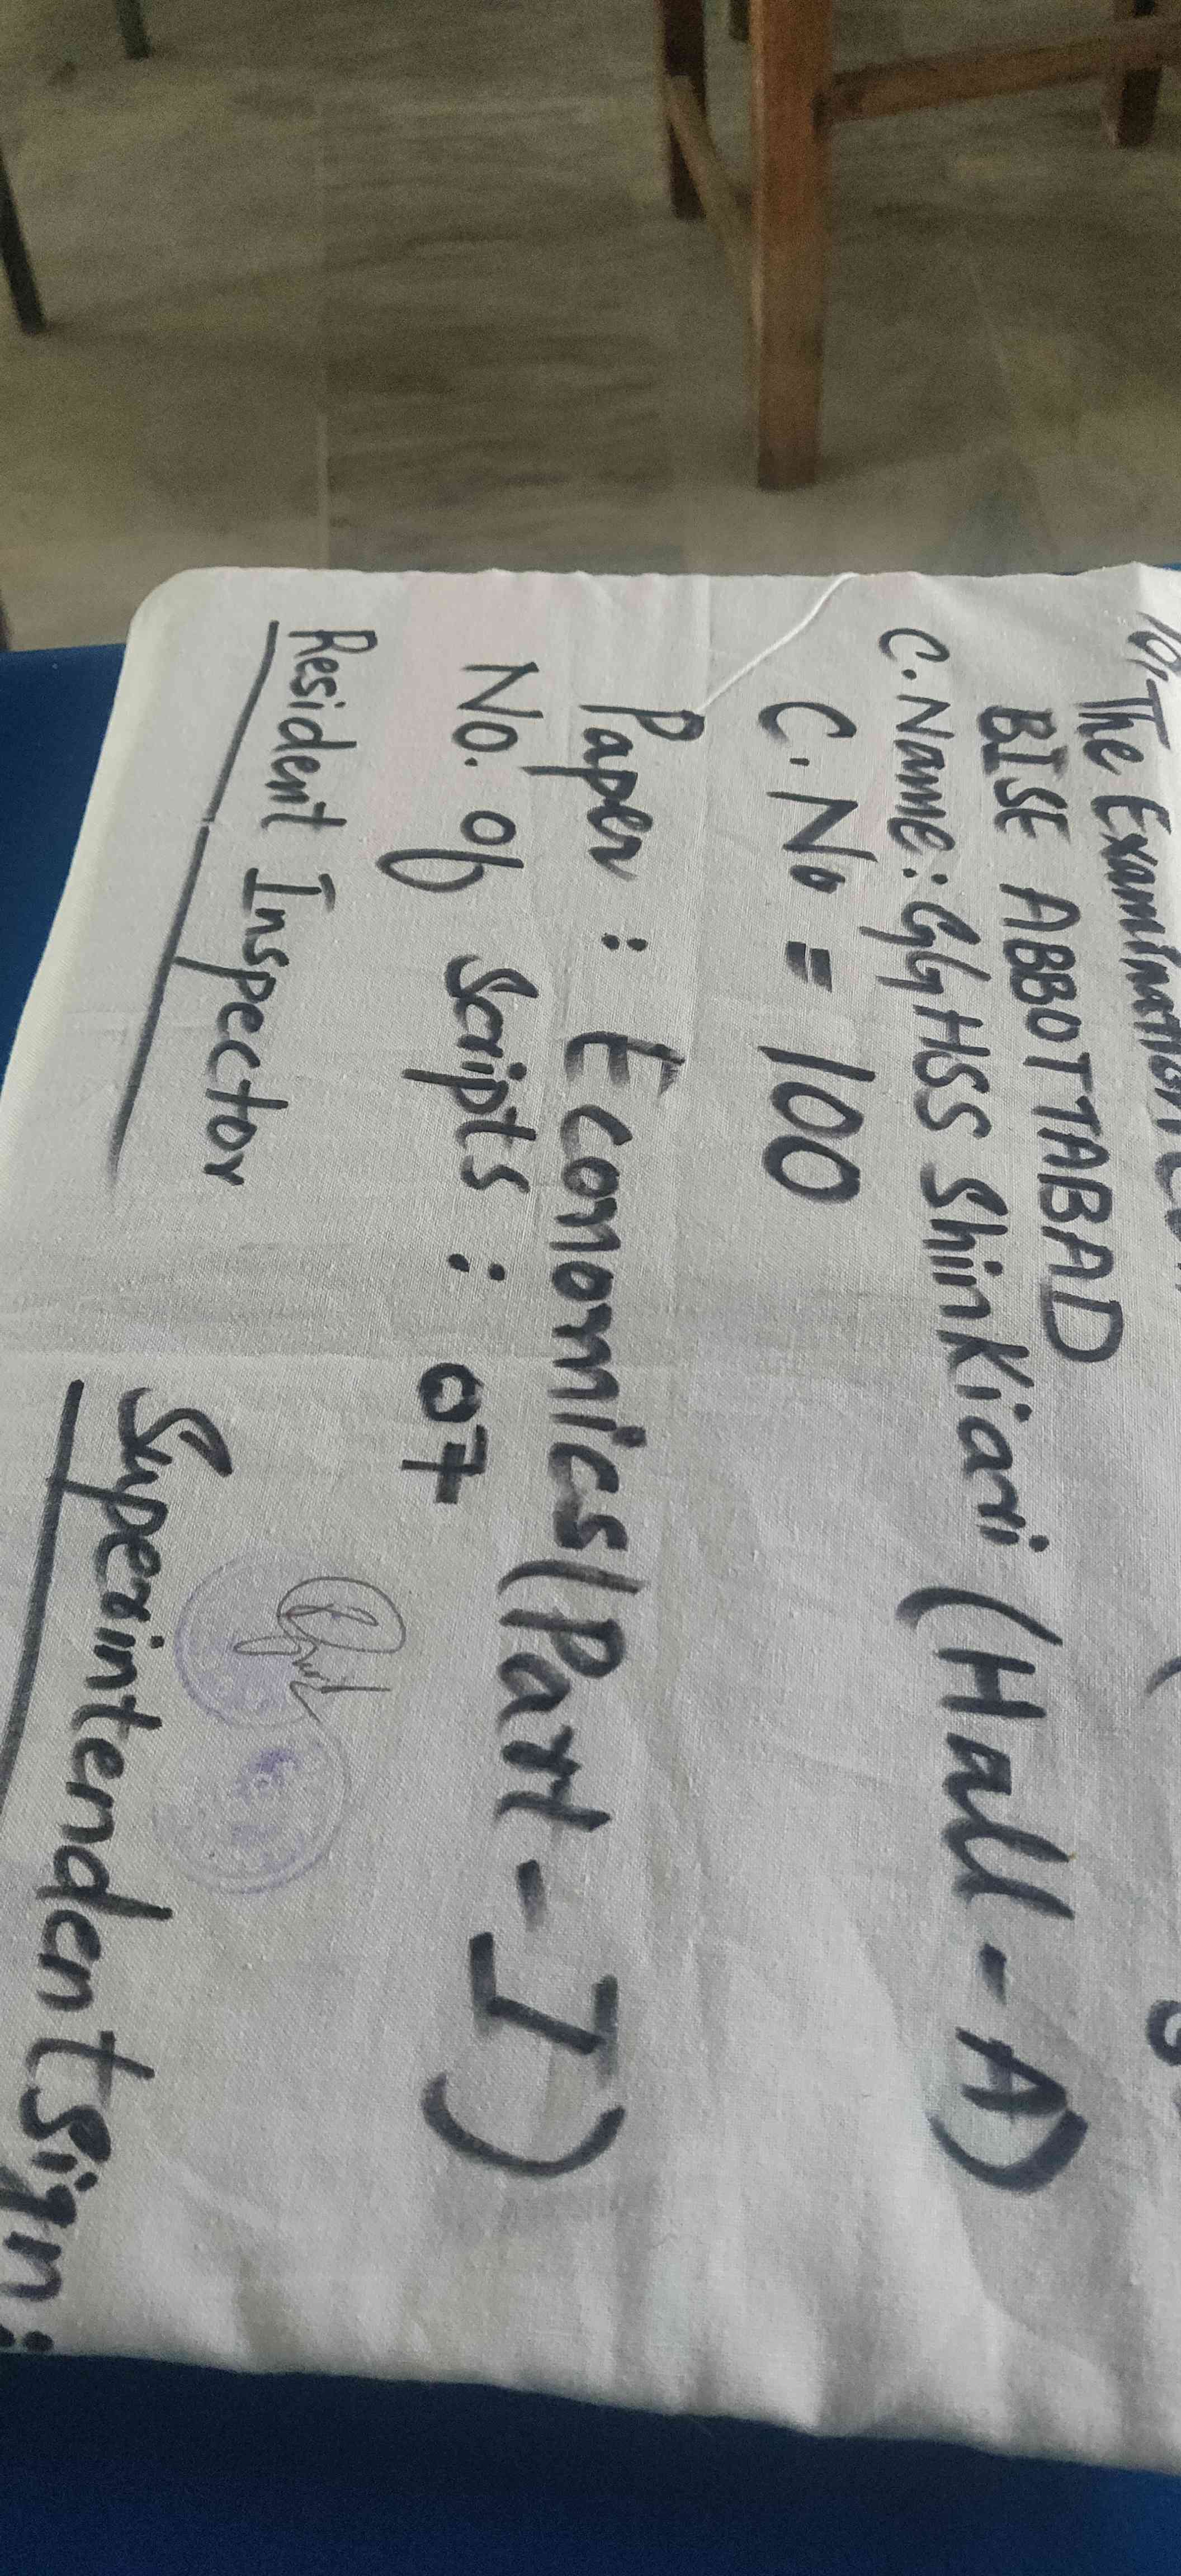 To, The Examination
BISE ABBOTTABAD
C.Name: GGHSS Shinkiari (Hall-A)
C.No = 100
Paper : Economics (Part-I)
No. of Scripts : 07
Resident Inspector
Superintendent Sign: